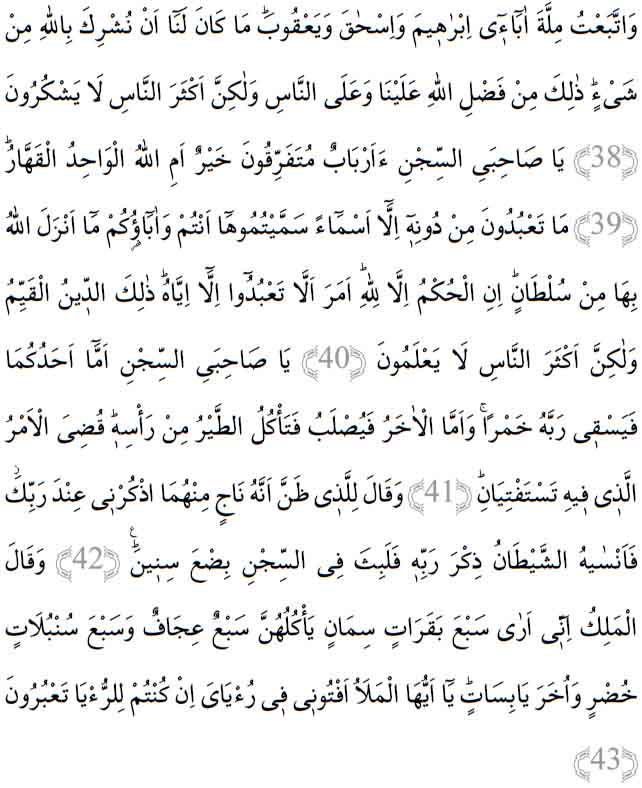 وَاتَّبَعْتُ مِلَّةَ اٰبَٓاء۪ٓي اِبْرٰه۪يمَ وَاِسْحٰقَ وَيَعْقُوبَۜ مَا كَانَ لَنَٓا اَنْ نُشْرِكَ بِاللّٰهِ مِنْ
شَيْءٍۜ ذٰلِكَ مِنْ فَضْلِ اللّٰهِ عَلَيْنَا وَعَلَى النَّاسِ وَلٰكِنَّ اَكْثَرَ النَّاسِ لَا يَشْكُرُونَ
﴿38﴾ يَا صَاحِبَيِ السِّجْنِ ءَاَرْبَابٌ مُتَفَرِّقُونَ خَيْرٌ اَمِ اللّٰهُ الْوَاحِدُ الْقَهَّارُۜ
﴿39﴾ مَا تَعْبُدُونَ مِنْ دُونِه۪ٓ اِلَّٓا اَسْمَٓاءً سَمَّيْتُمُوهَٓا اَنْتُمْ وَاٰبَٓاؤُ۬كُمْ مَٓا اَنْزَلَ اللّٰهُ
بِهَا مِنْ سُلْطَانٍۜ اِنِ الْحُكْمُ اِلَّا لِلّٰهِۜ اَمَرَ اَلَّا تَعْبُدُٓوا اِلَّٓا اِيَّاهُۜ ذٰلِكَ الدّ۪ينُ الْقَيِّمُ
وَلٰكِنَّ اَكْثَرَ النَّاسِ لَا يَعْلَمُونَ ﴿40﴾ يَا صَاحِبَيِ السِّجْنِ اَمَّٓا اَحَدُكُمَا
فَيَسْق۪ي رَبَّهُ خَمْرًاۚ وَاَمَّا الْاٰخَرُ فَيُصْلَبُ فَتَأْكُلُ الطَّيْرُ مِنْ رَأْسِه۪ۜ قُضِيَ الْاَمْرُ
الَّذ۪ي ف۪يهِ تَسْتَفْتِيَانِۜ ﴿41﴾ وَقَالَ لِلَّذ۪ي ظَنَّ اَنَّهُ نَاجٍ مِنْهُمَا اذْكُرْن۪ي عِنْدَ رَبِّكَۘ
فَاَنْسٰيهُ الشَّيْطَانُ ذِكْرَ رَبِّه۪ فَلَبِثَ فِي السِّجْنِ بِضْعَ سِن۪ينَۜ۟ ﴿42﴾ وَقَالَ
الْمَلِكُ اِنّ۪ٓي اَرٰى سَبْعَ بَقَرَاتٍ سِمَانٍ يَأْكُلُهُنَّ سَبْعٌ عِجَافٌ وَسَبْعَ سُنْبُلَاتٍ
خُضْرٍ وَاُخَرَ يَابِسَاتٍۜ يَٓا اَيُّهَا الْمَلَأُ اَفْتُون۪ي ف۪ي رُءْيَايَ اِنْ كُنْتُمْ لِلرُّءْيَا تَعْبُرُونَ
﴿43﴾